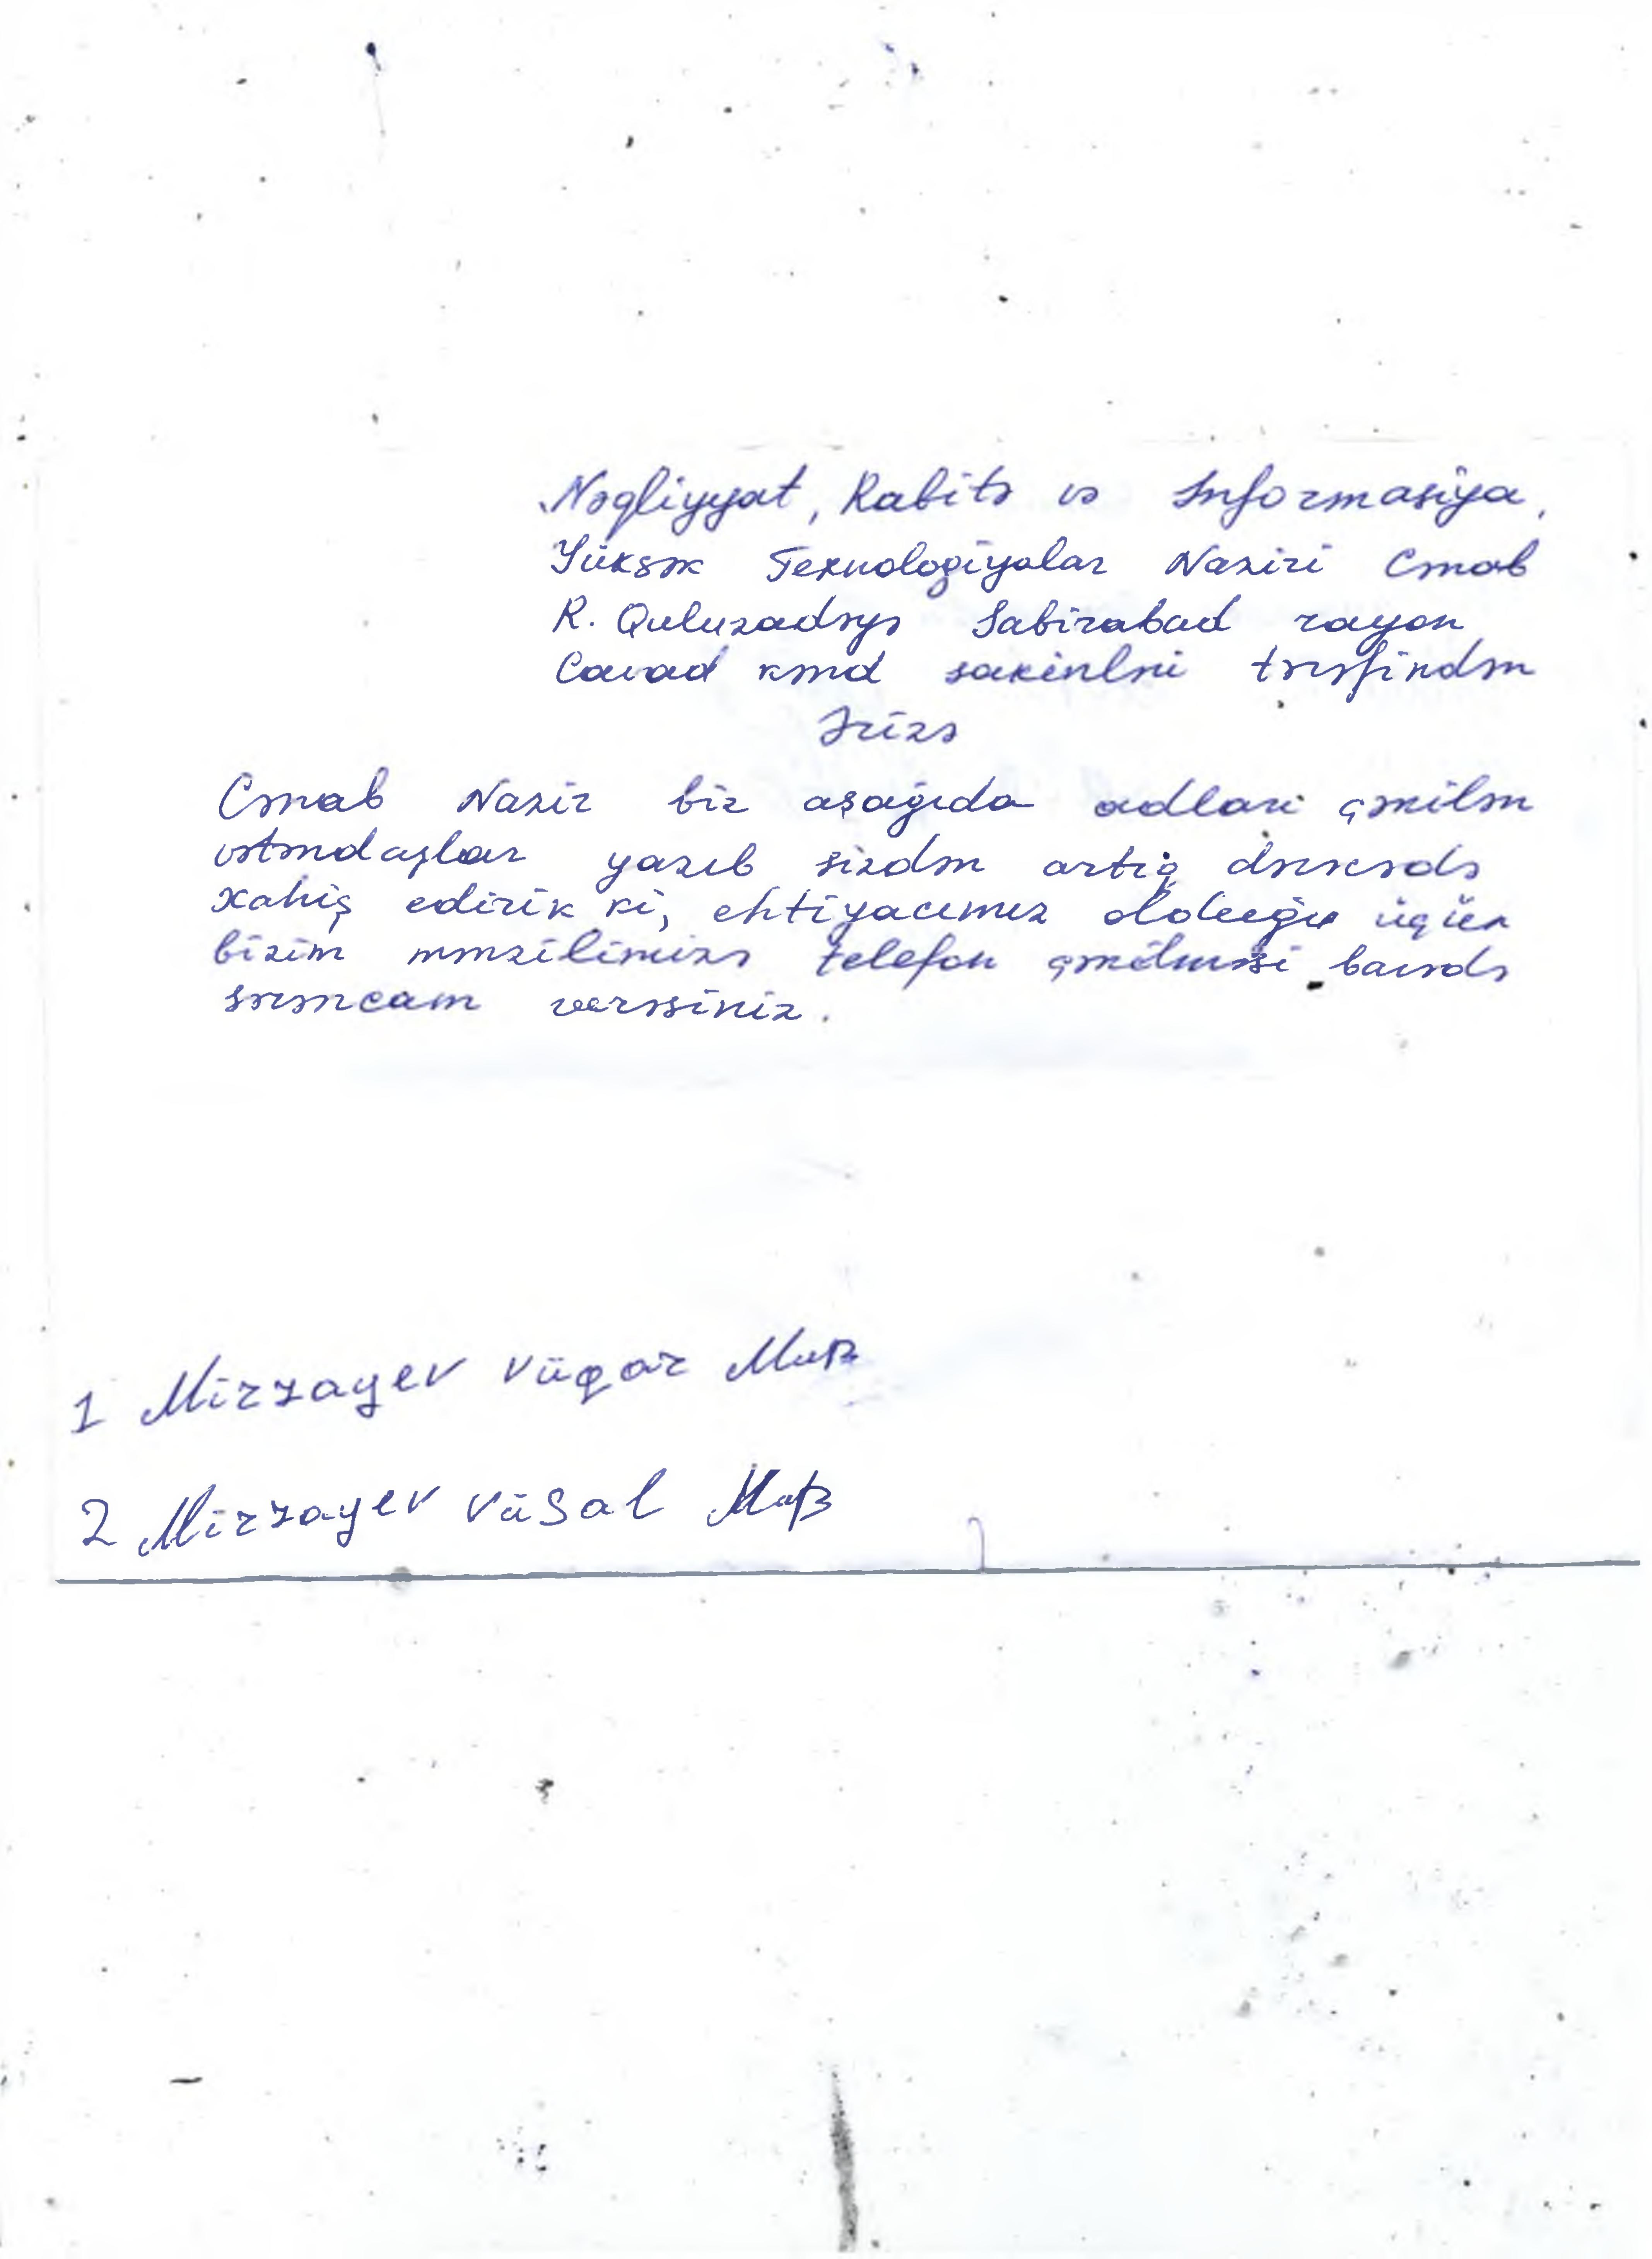 Nəqliyyat, Rabitə və İnformasiya,
Yüksək Texnologiyalar Naziri Cənab
R. Quluzadəyə Sabirabad rayon
Cavad kənd sakinləri tərəfindən
Ərizə
Cənab Nazir biz aşağıda adları çəkilən
vətəndaşlar yazıb sizdən artıq dərəcədə
xahiş edirik ki, ehtiyacımız olduğu üçün
bizim mənzilimizə telefon çəkilməsi barədə
sərəncam verəsiniz.
1 Mirzayev Vüqar
2 Mirzayev Vüsal